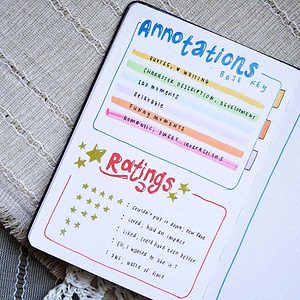 Annotations
BASE KEY
QUOTES, & WRITING
CHARACTER DESCRIPTION, DEVELOPMENT
SAD MOMENTS
Relatable
FUNNY MOMENTS
ROMANTIC, SWEET INTERACTIONS
Ratings
: couldn't put it down, new fave
: Loved, had an impact
: Liked, could have been better
: Eh, I wanted to like it?
: DNF, waste of time